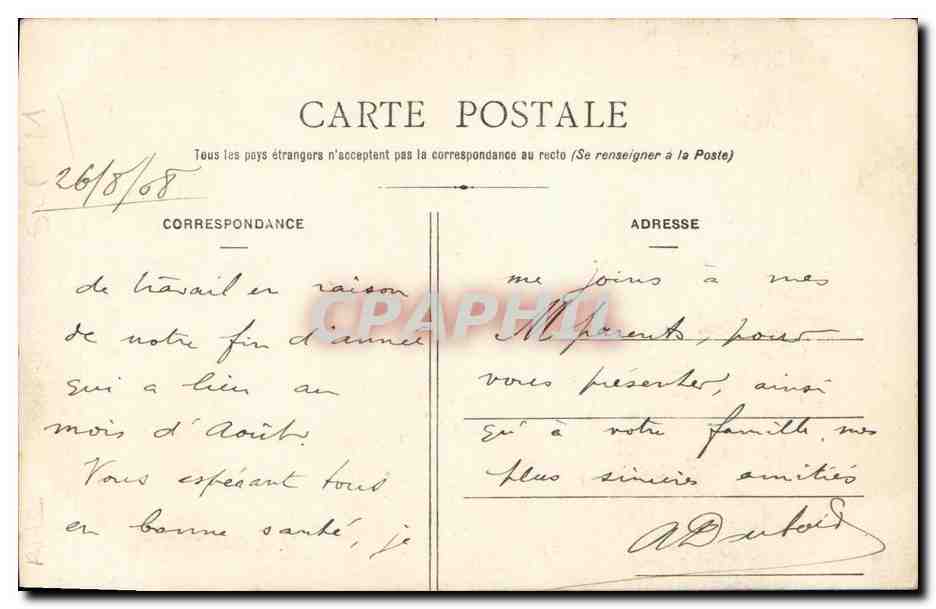 CARTE POSTALE
Tous les pays étrangers n'acceptent pas la correspondance au recto (Se renseigner à la Poste)
26/8/08
CORRESPONDANCE
de travail en raison
de notre fin d'année
qui a lieu au
mois d'Août.
Vous espérant tous
en bonne santé, je
ADRESSE
me joins à mes
parents, pour
vous présenter, ainsi
qu'à votre famille, mes
plus sincères amitiés
CPAPHIL